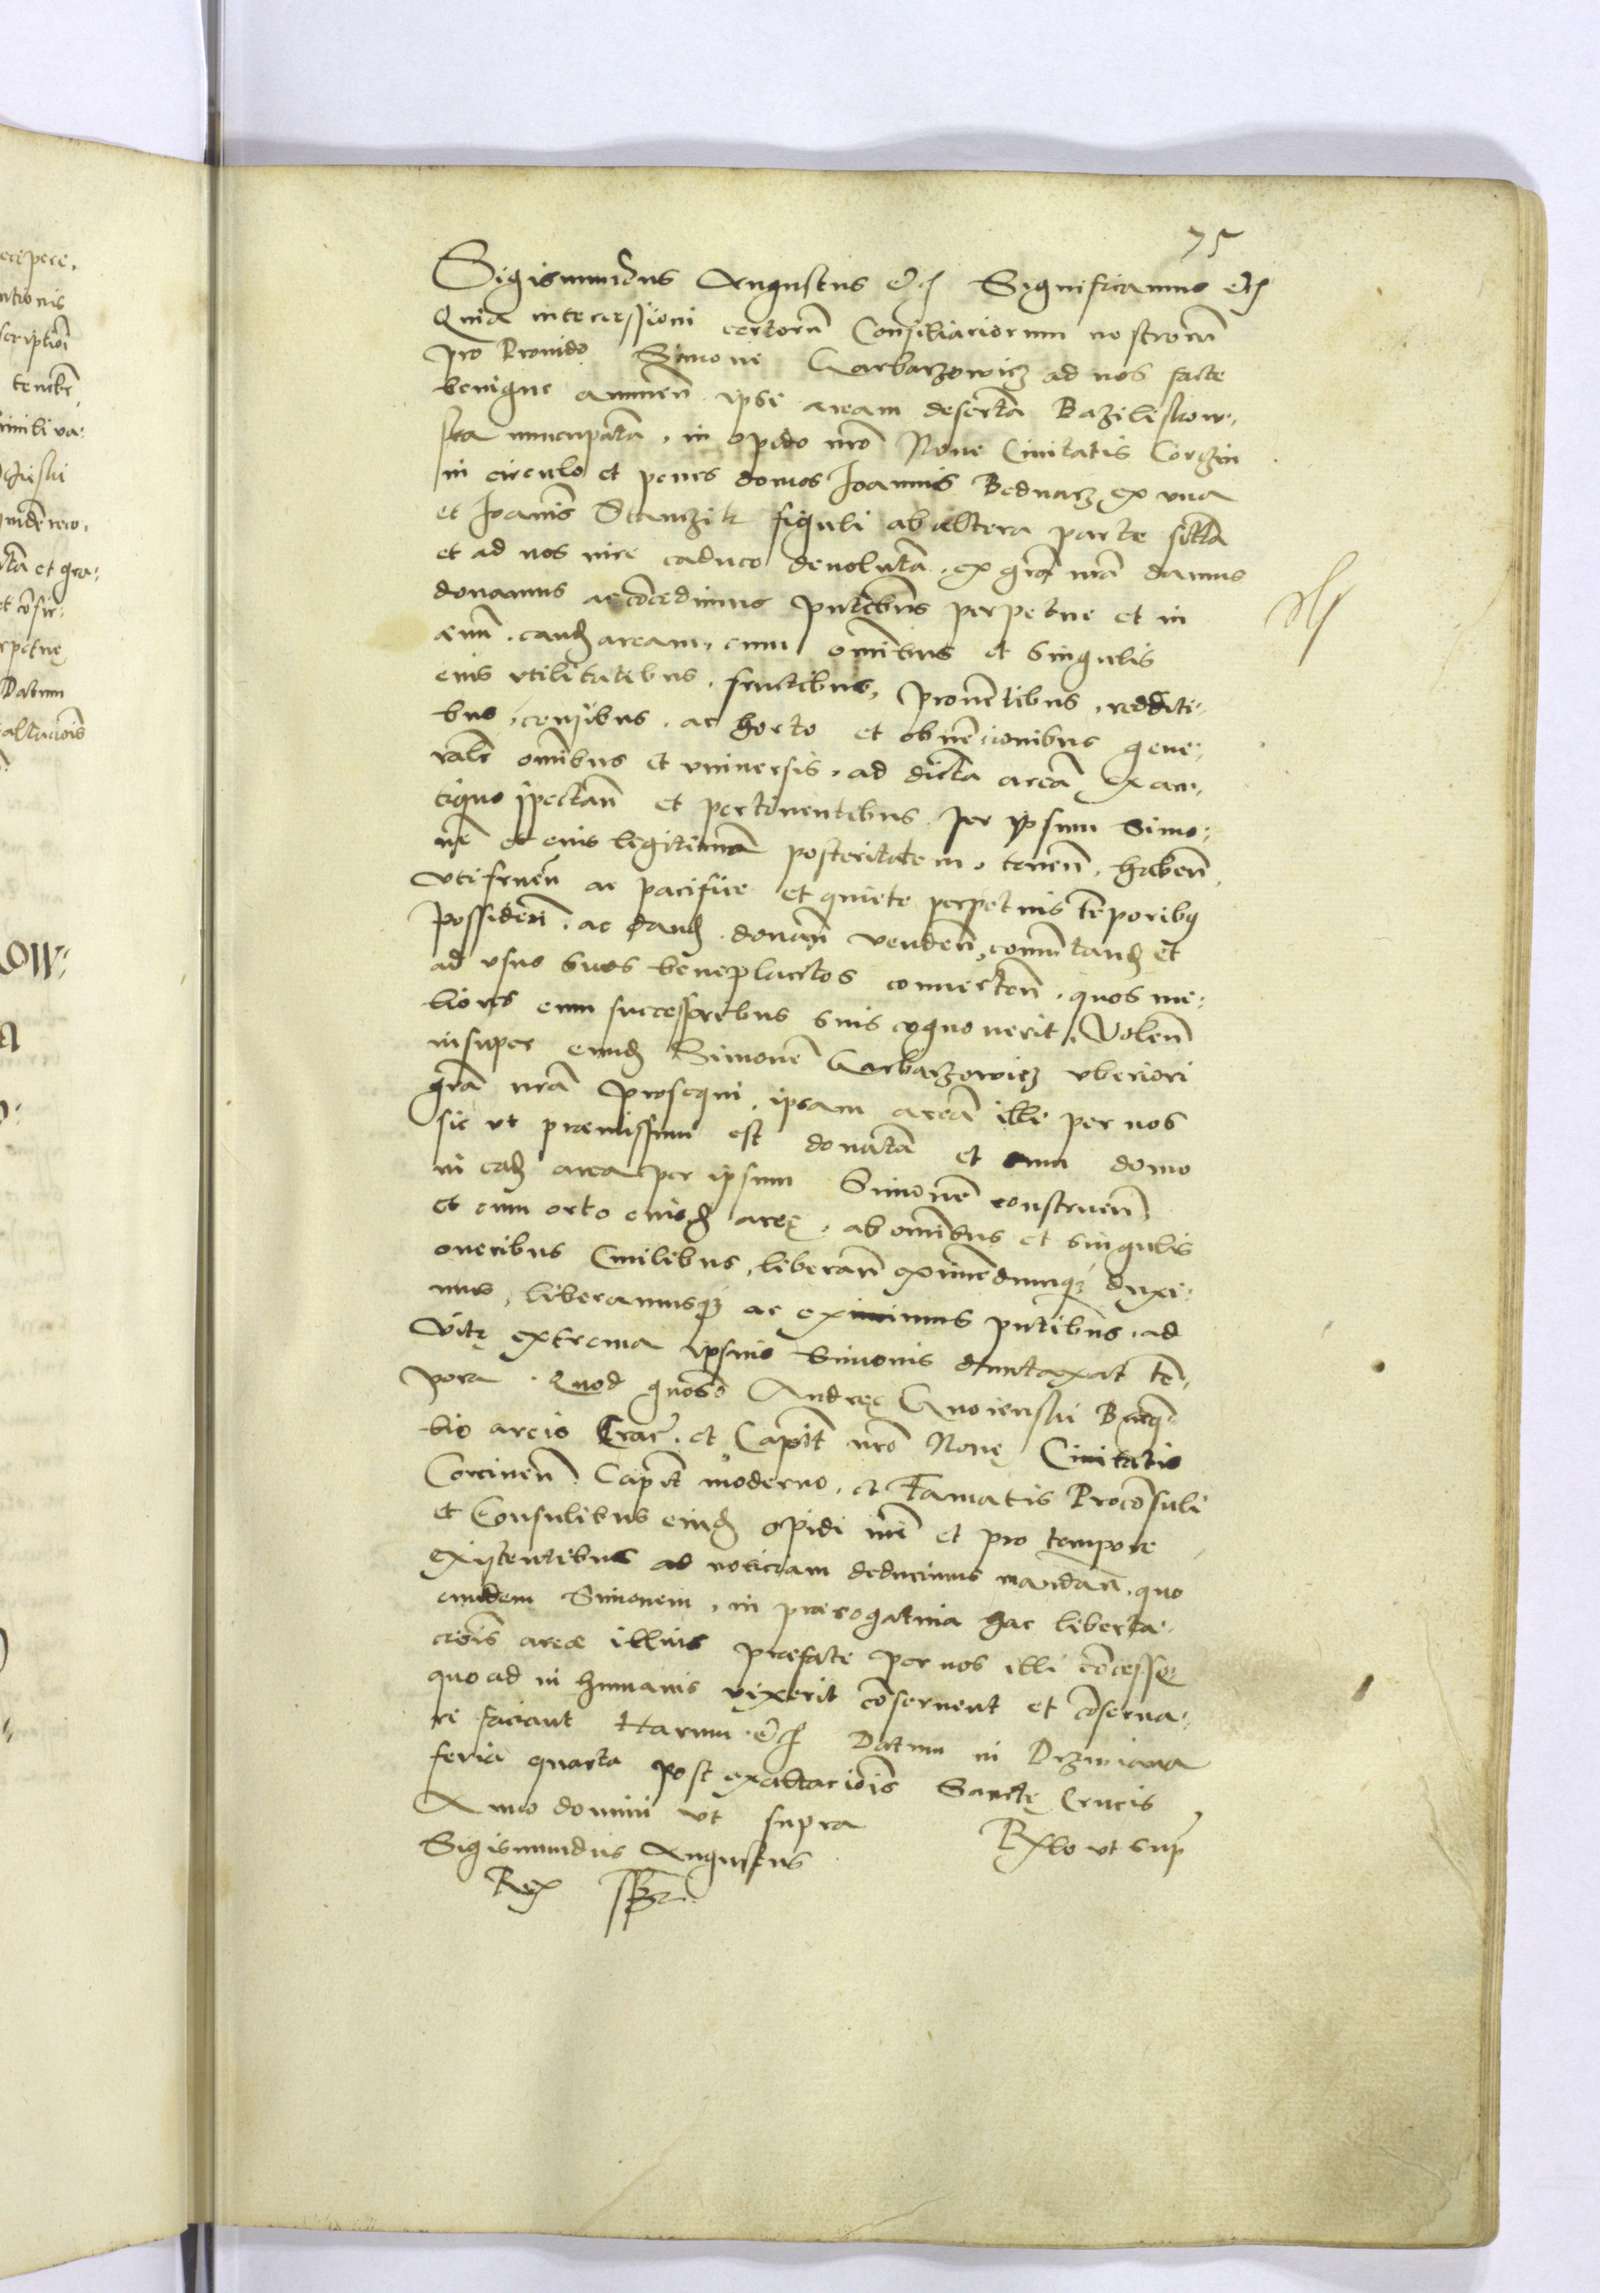 75
Sigismundus Augustus etc Significamus etc
Quia intercessioni certorũ Consiliariorum nostrorũ
pro Provido Simone Garbarzowicz ad nos facte
benigne annuen̄ ipsi aream desertã Bazilisskow-
ska nuncupatã, in opido nr̃o None Civitatis Corzin
in circulo et penes domos Joannis Bednarz ex una
et Joanis Stanczik figuli ab altera parte sittã
et ad nos iure caduco devolutã, ex gr̃a nr̃a damus
donamus ac cõcedimus pñtibus perpetue et in
evũ. eandẽ aream, cum oñibus et singulis
eius utilitatibus, fructibus, provẽtibus, redditi-
bus, censibus, ac horto et obvẽcionibus gene-
ralr̃ oñibus et universis, ad dictã areã ex an-
tiquo spectan̄ et pertinentibus. per ipsum Simo-
nẽ et eius legitimã posteritatem, tenen̄, haben̄,
utifruen̄ ac pacifice et quiete perpetuis tẽporibus
possiden̄. ac dand̄ donan̄ venden̄, comutand̄ et
ad usus suos beneplacitos converten̄, quos me-
liores cum successoribus suis cognoverit. Volen̄
insuper eund̄ Simonẽ Garbarzowicz uberiori
gr̃a nr̃a prosequi, ipsam areã illi per nos
sic ut praemissum est donatã et cum domo
in ead̄ area per ipsum Simonẽ construen̄
et cum orto eiusd̄ areę, ab oñibus et singulis
oneribus Civilibus, liberan̄ eximẽdumq; duxi-
mus, liberamusq; ac eximimus pñtibus, ad
vitę extrema ipsius Simonis duntaxat tẽ-
pora. Quod gñoso Andreę
bio arcis Crac̃. et Capit̃ nr̃o Novę Civitatis
Corcinen̄ Capit̃ moderno, et Famatis Procõsuli
et Consulibus eiusd̄ opidi nr̃i et pro tempore
existentibus ad noticiam deducimus mandan̄, quo
eundem Simonem, in praerogativa hac liberta-
ciõis areae illius praefate per nos illi cõcesse
quoad in humanis vixerit cõservent et cõserva-
ri faciant Harum etc Datum in
feria quarta post exaltaciõis Sanctę Crucis
Anno domini ut supra
Sigismundus Augustus
Rex
ut sup̃